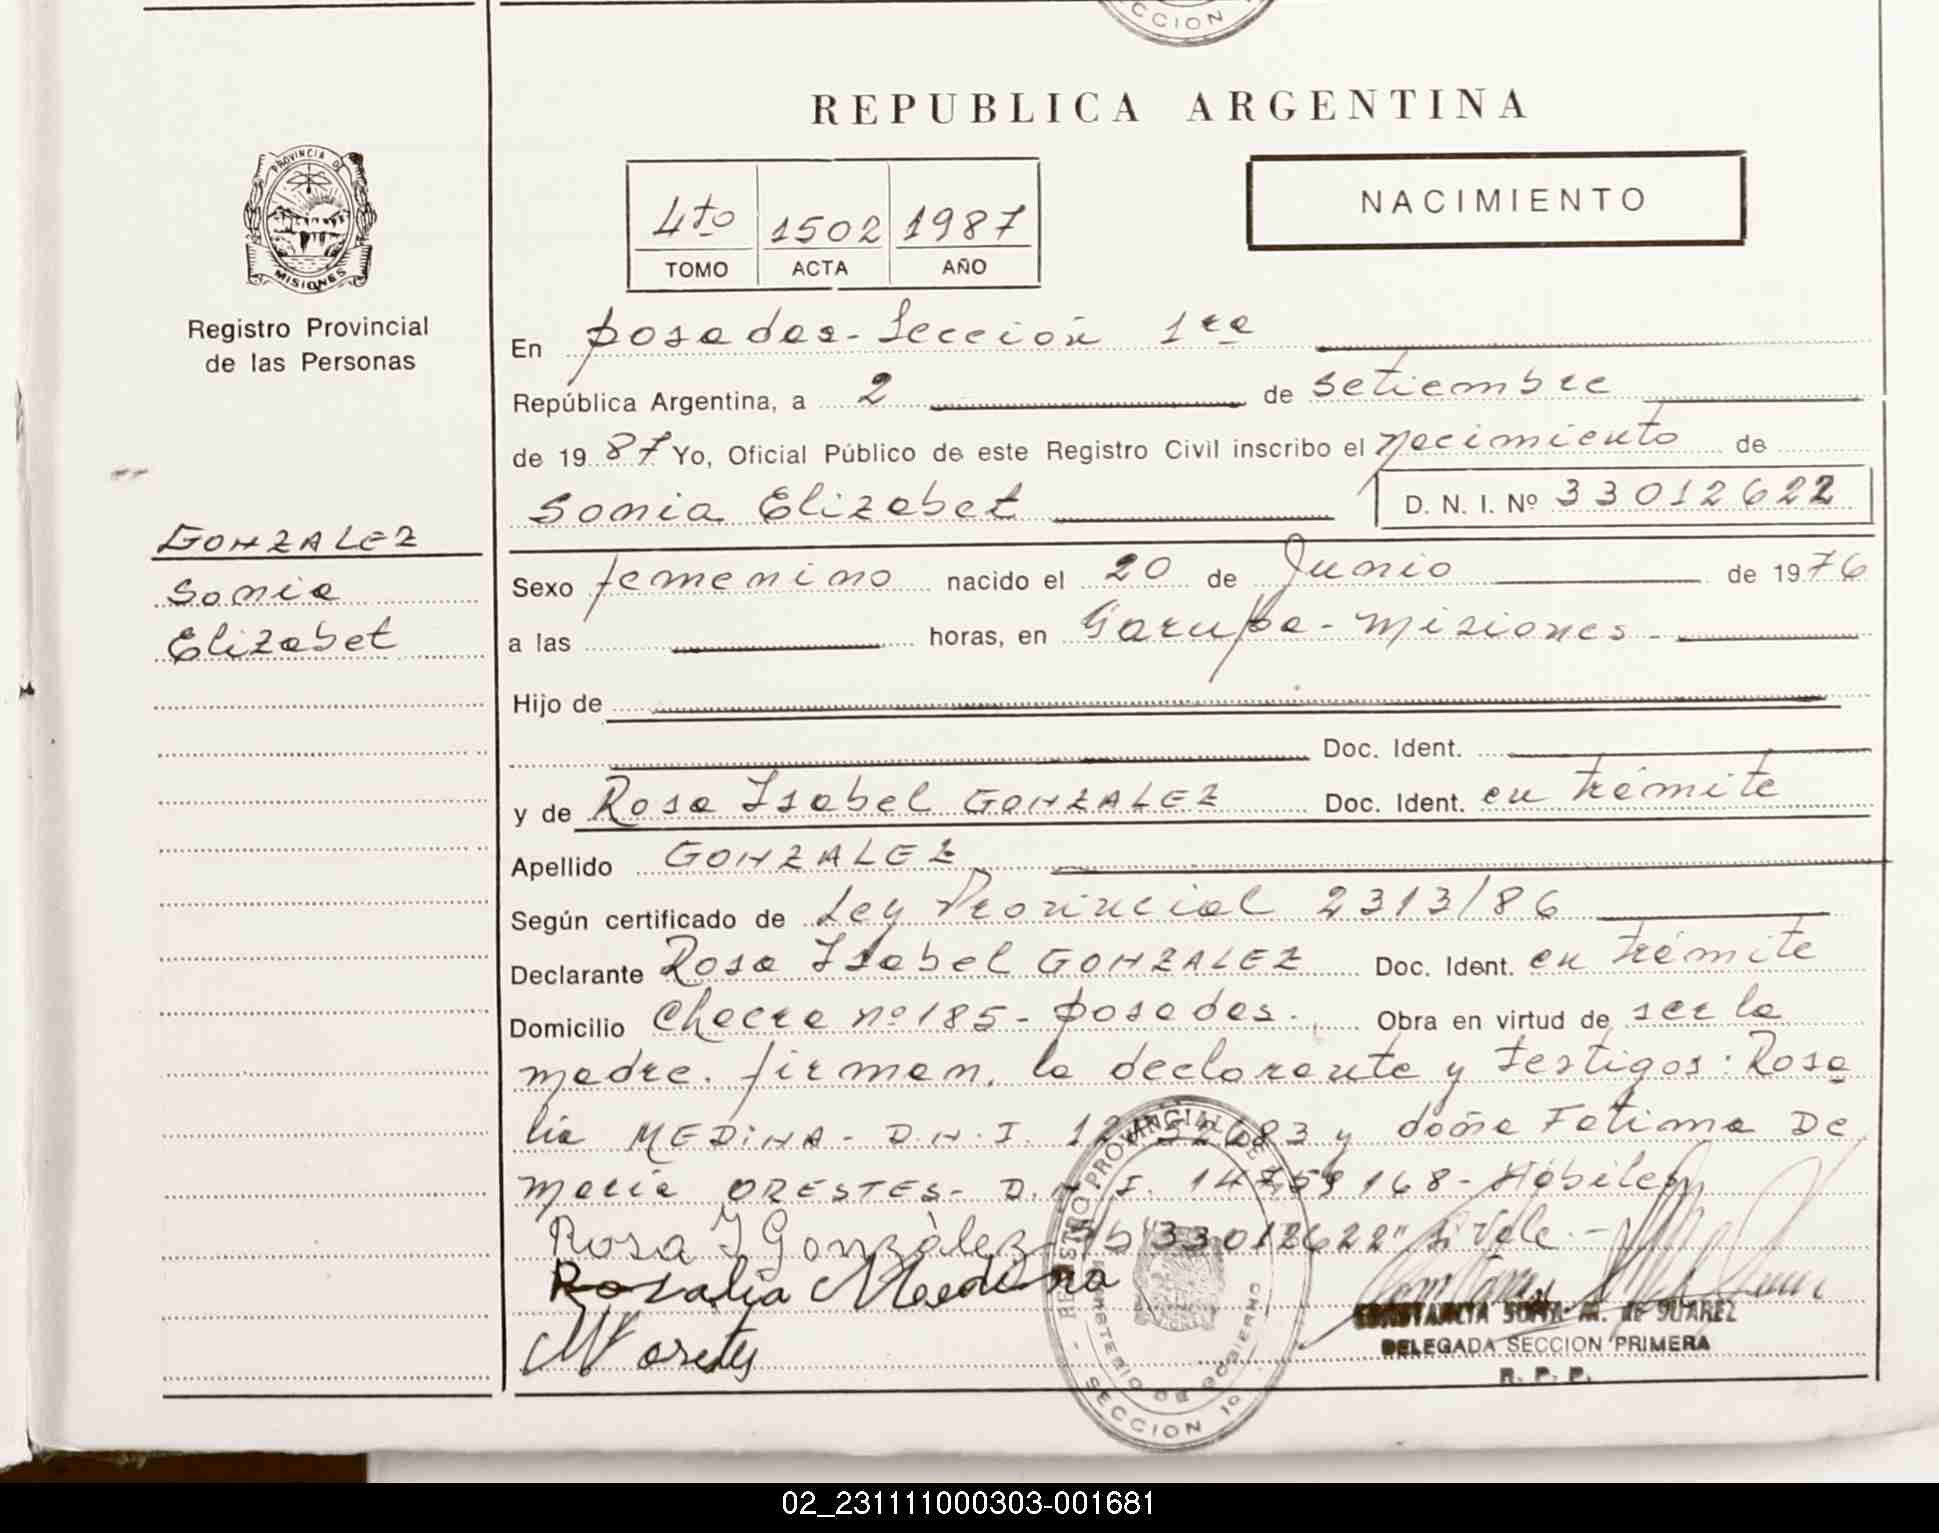 CCION
REPUBLICA ARGENTINA
PROVINCIA DE
MISIONES
Registro Provincial
de las Personas
4to 1502 1987
TOMO ACTA AÑO
NACIMIENTO
En posadas - Sección 1ra
República Argentina, a 2 de setiembre
de 1987 Yo, Oficial Público de este Registro Civil inscribo el nacimiento de
Sonia Elizabet D. N. I. Nº 33012622
GONZALEZ
Sonia
Elizabet
Sexo femenino nacido el 20 de Junio de 1976
a las horas, en Garupa - Misiones -
Hijo de
Doc. Ident.
y de Rosa Isabel GONZALEZ Doc. Ident. en trámite
Apellido GONZALEZ
Según certificado de Ley Provincial 2313/86
Declarante Rosa Isabel GONZALEZ Doc. Ident. en trámite
Domicilio Chacra nº 185 - posadas. Obra en virtud de ser la
madre. firman, la declarante y testigos: Rosa
lia MEDINA - D.N.I. y doña Fatima De
Maria ORESTES - D.N.I. 168 -
Rosa I González "33012622" Vale. -
Rosalia Medina
CONSTANCIA SOFIA M. de SUAREZ
DELEGADA SECCION PRIMERA
R. P. P.
REGISTRO PROVINCIAL DE
MINISTERIO DE GOBIERNO
SECCION 1º
02_231111000303-001681